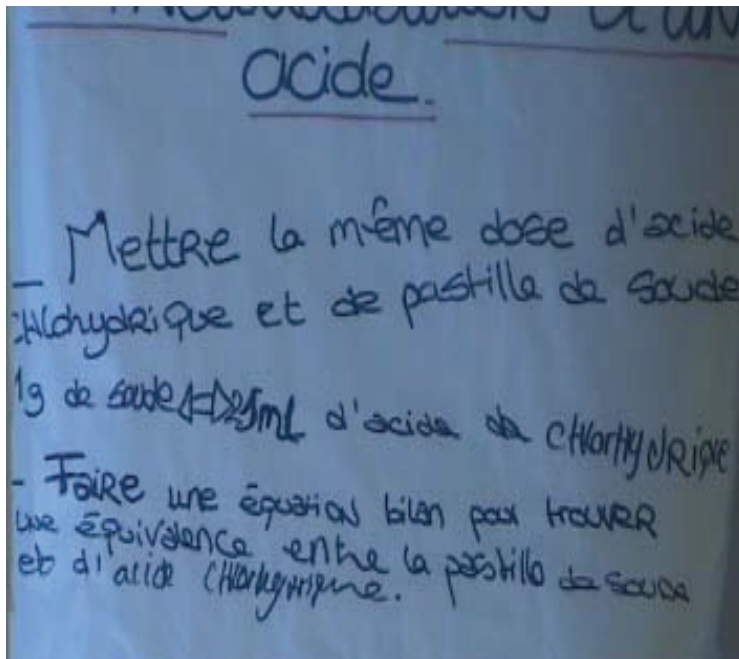 d'un
acide.
_ Mettre la même dose d'acide
chlohydrique et de pastille de soude
1g de soude <=> 25ml d'acide de chlorhydrique
- Faire une équation bilan pour trouver
une équivalence entre la pastille de soude
et d'acide chlorhyrique.